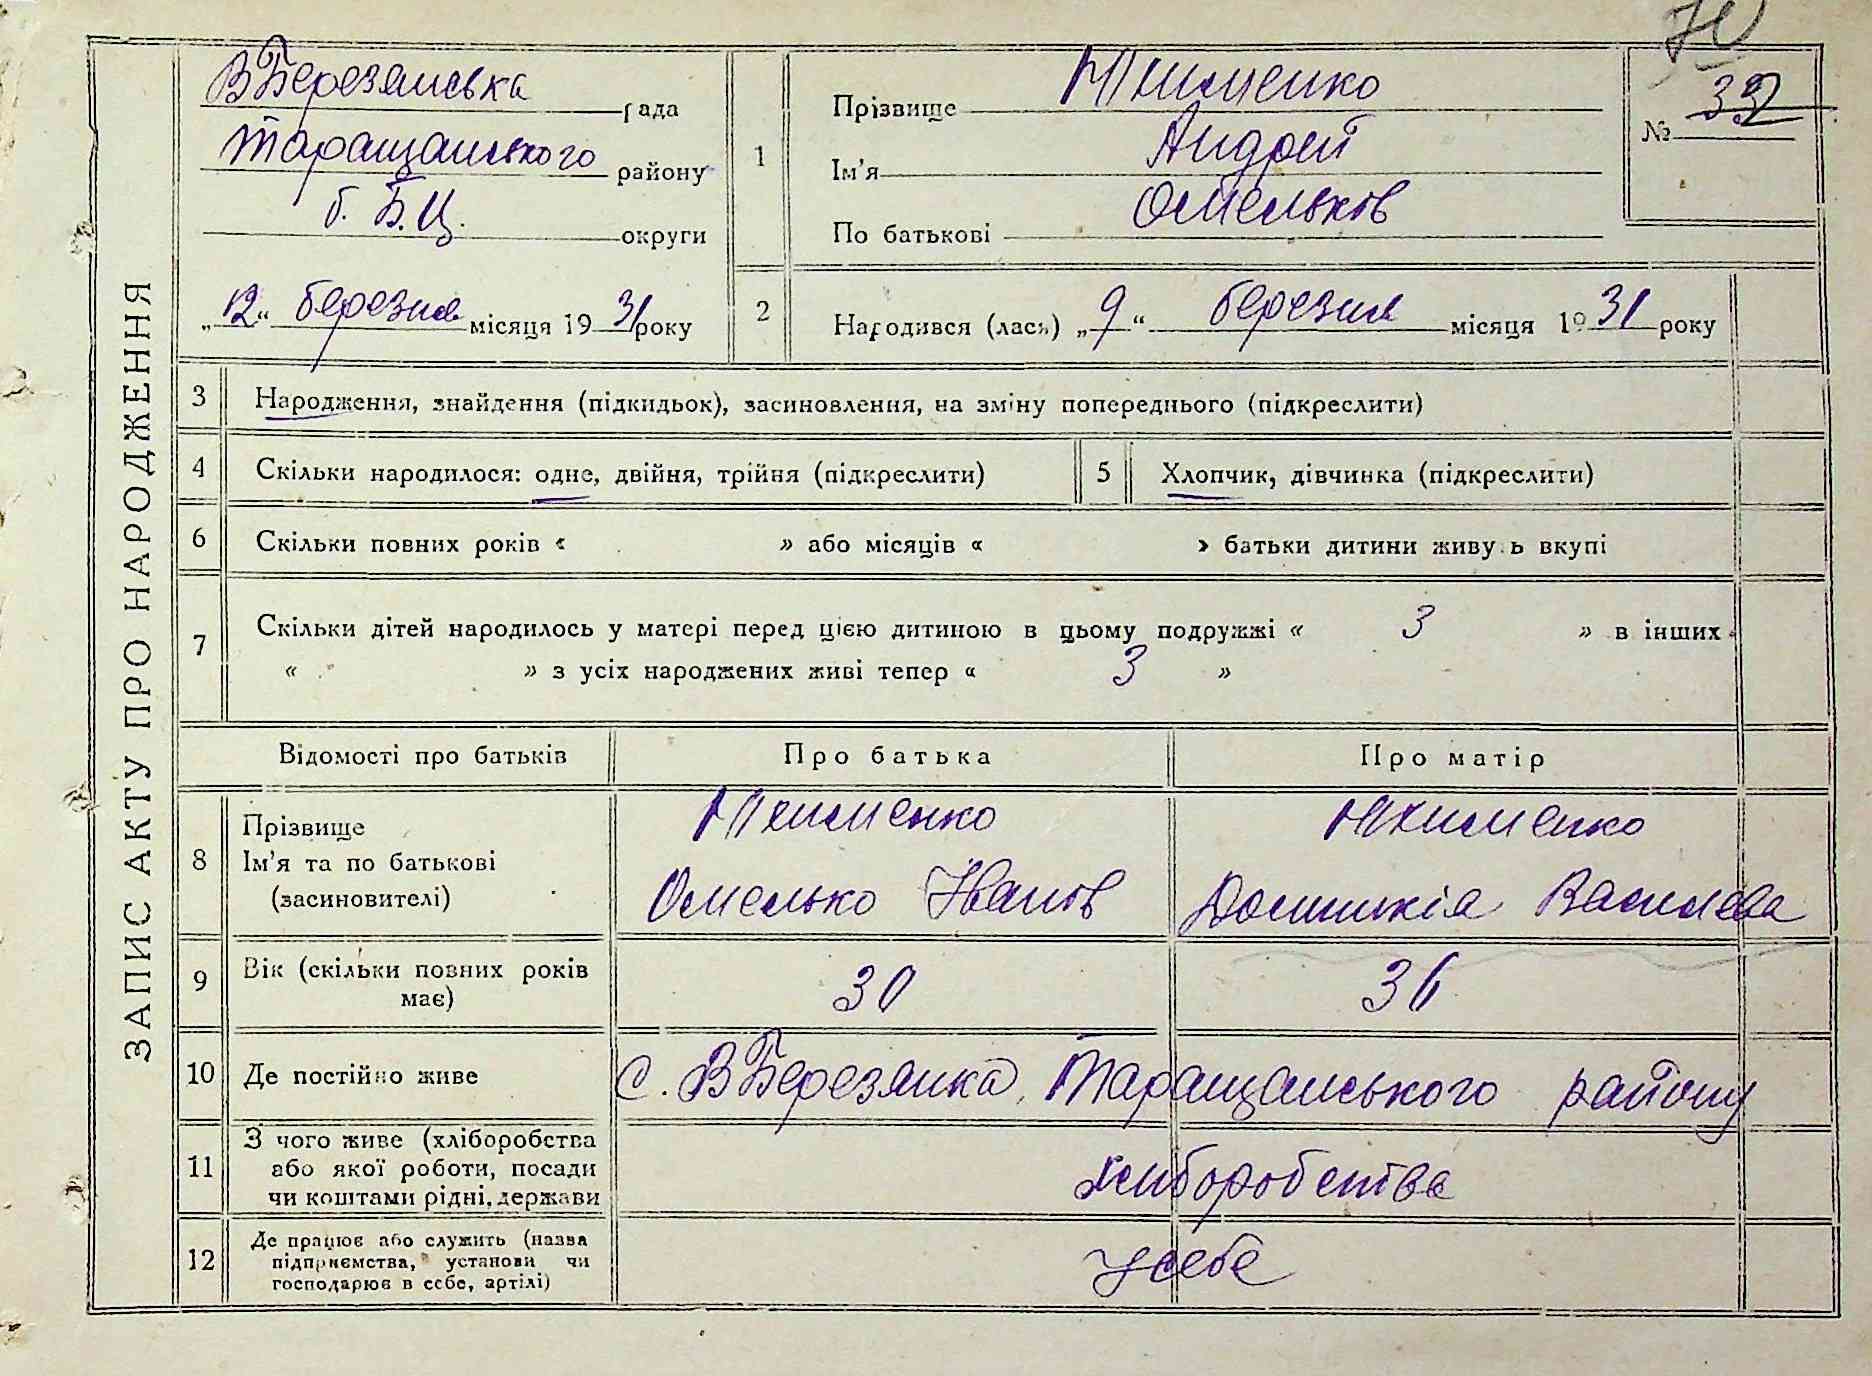 ЗАПИС АКТУ ПРО НАРОДЖЕННЯ
70
ВБерезянська рада
Таращанського району
б. Б.Ц. округи
„12“ березня місяця 1931 року
1
Прізвище Юхименко
Ім'я Андрей
По батькові Омельков
№ 32
2
Народився (лась) „9“ березня місяця 1931 року
3 Народження, знайдення (підкидьок), засиновлення, на зміну попереднього (підкреслити)
4 Скільки народилося: одне, двійня, трійня (підкреслити)
5 Хлопчик, дівчинка (підкреслити)
6 Скільки повних років « » або місяців « » батьки дитини живуть вкупі
7 Скільки дітей народилось у матері перед цією дитиною в цьому подружжі « 3 » в інших
« » з усіх народжених живі тепер « 3 »
Відомості про батьків Про батька Про матір
8 Прізвище
Ім'я та по батькові
(засиновителі)
Юхименко
Омелько Іванов
Юхименко
Домникія Василева
9 Вік (скільки повних років
має)
30 36
10 Де постійно живе с. ВБерезянка, Таращанського району
11 З чого живе (хліборобства
або якої роботи, посади
чи коштами рідні, держави
хліборобства
12 Де працює або служить (назва
підприємства, установи чи
господарює в себе, артілі)
у себе